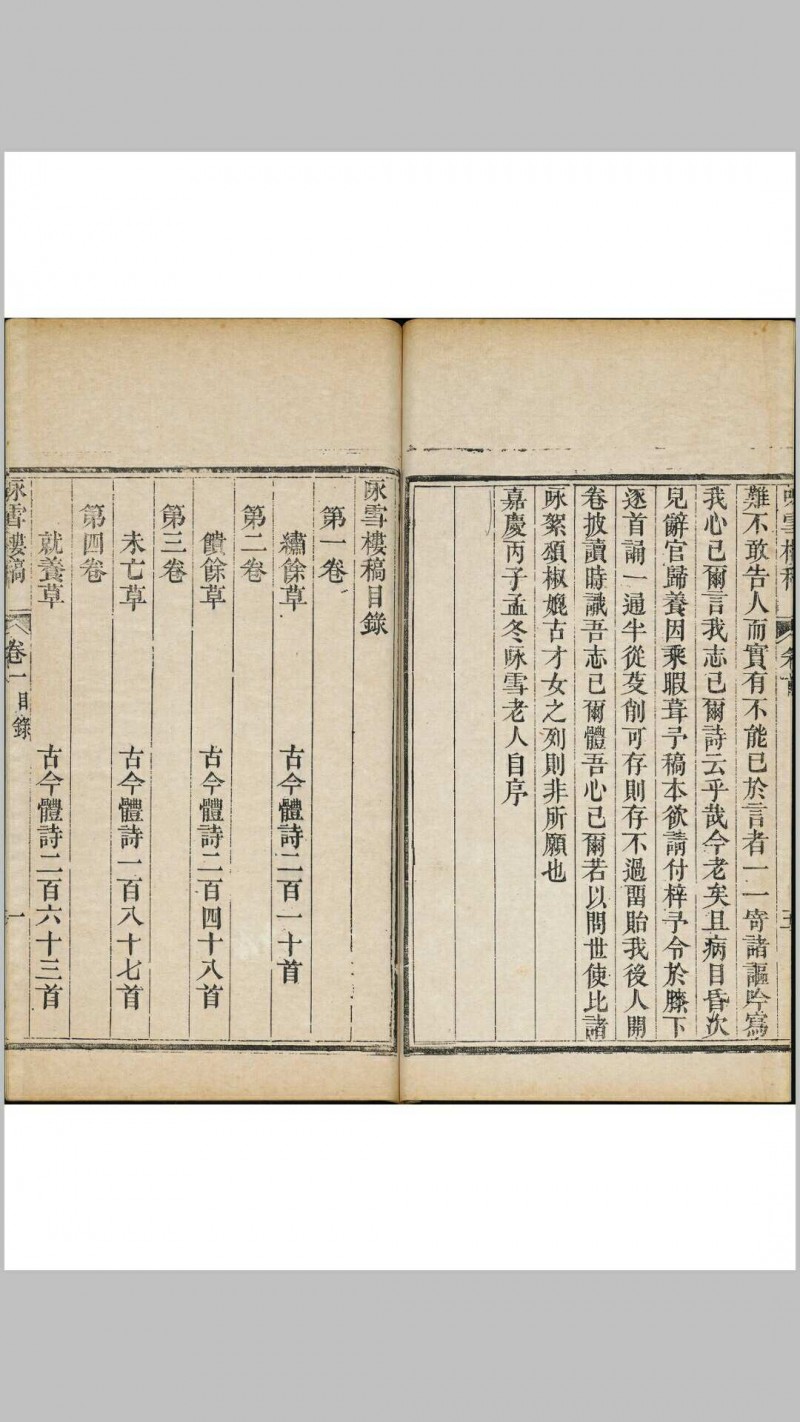 難不敢告人而實有不能已於言者一一寄諸謳吟寫
我心已爾言我志已爾詩云乎哉今老矣且病目昏次
兒辭官歸養因乘暇葺予稿本欲請付梓予令於膝下
逐首誦一過半從芟削可存則存不過畱貽我後人開
卷披讀時識吾志已爾體吾心已爾若以問世使比諸
咏絮頌椒媲古才女之列則非所願也
嘉慶丙子孟冬咏雪老人自序
咏雪樓稿目錄
第一卷
繡餘草 古今體詩二百一十首
第二卷
饋餘草 古今體詩二百四十八首
第三卷
未亡草 古今體詩一百八十七首
第四卷
就養草 古今體詩二百六十三首
咏雪樓稿 卷一目錄 一